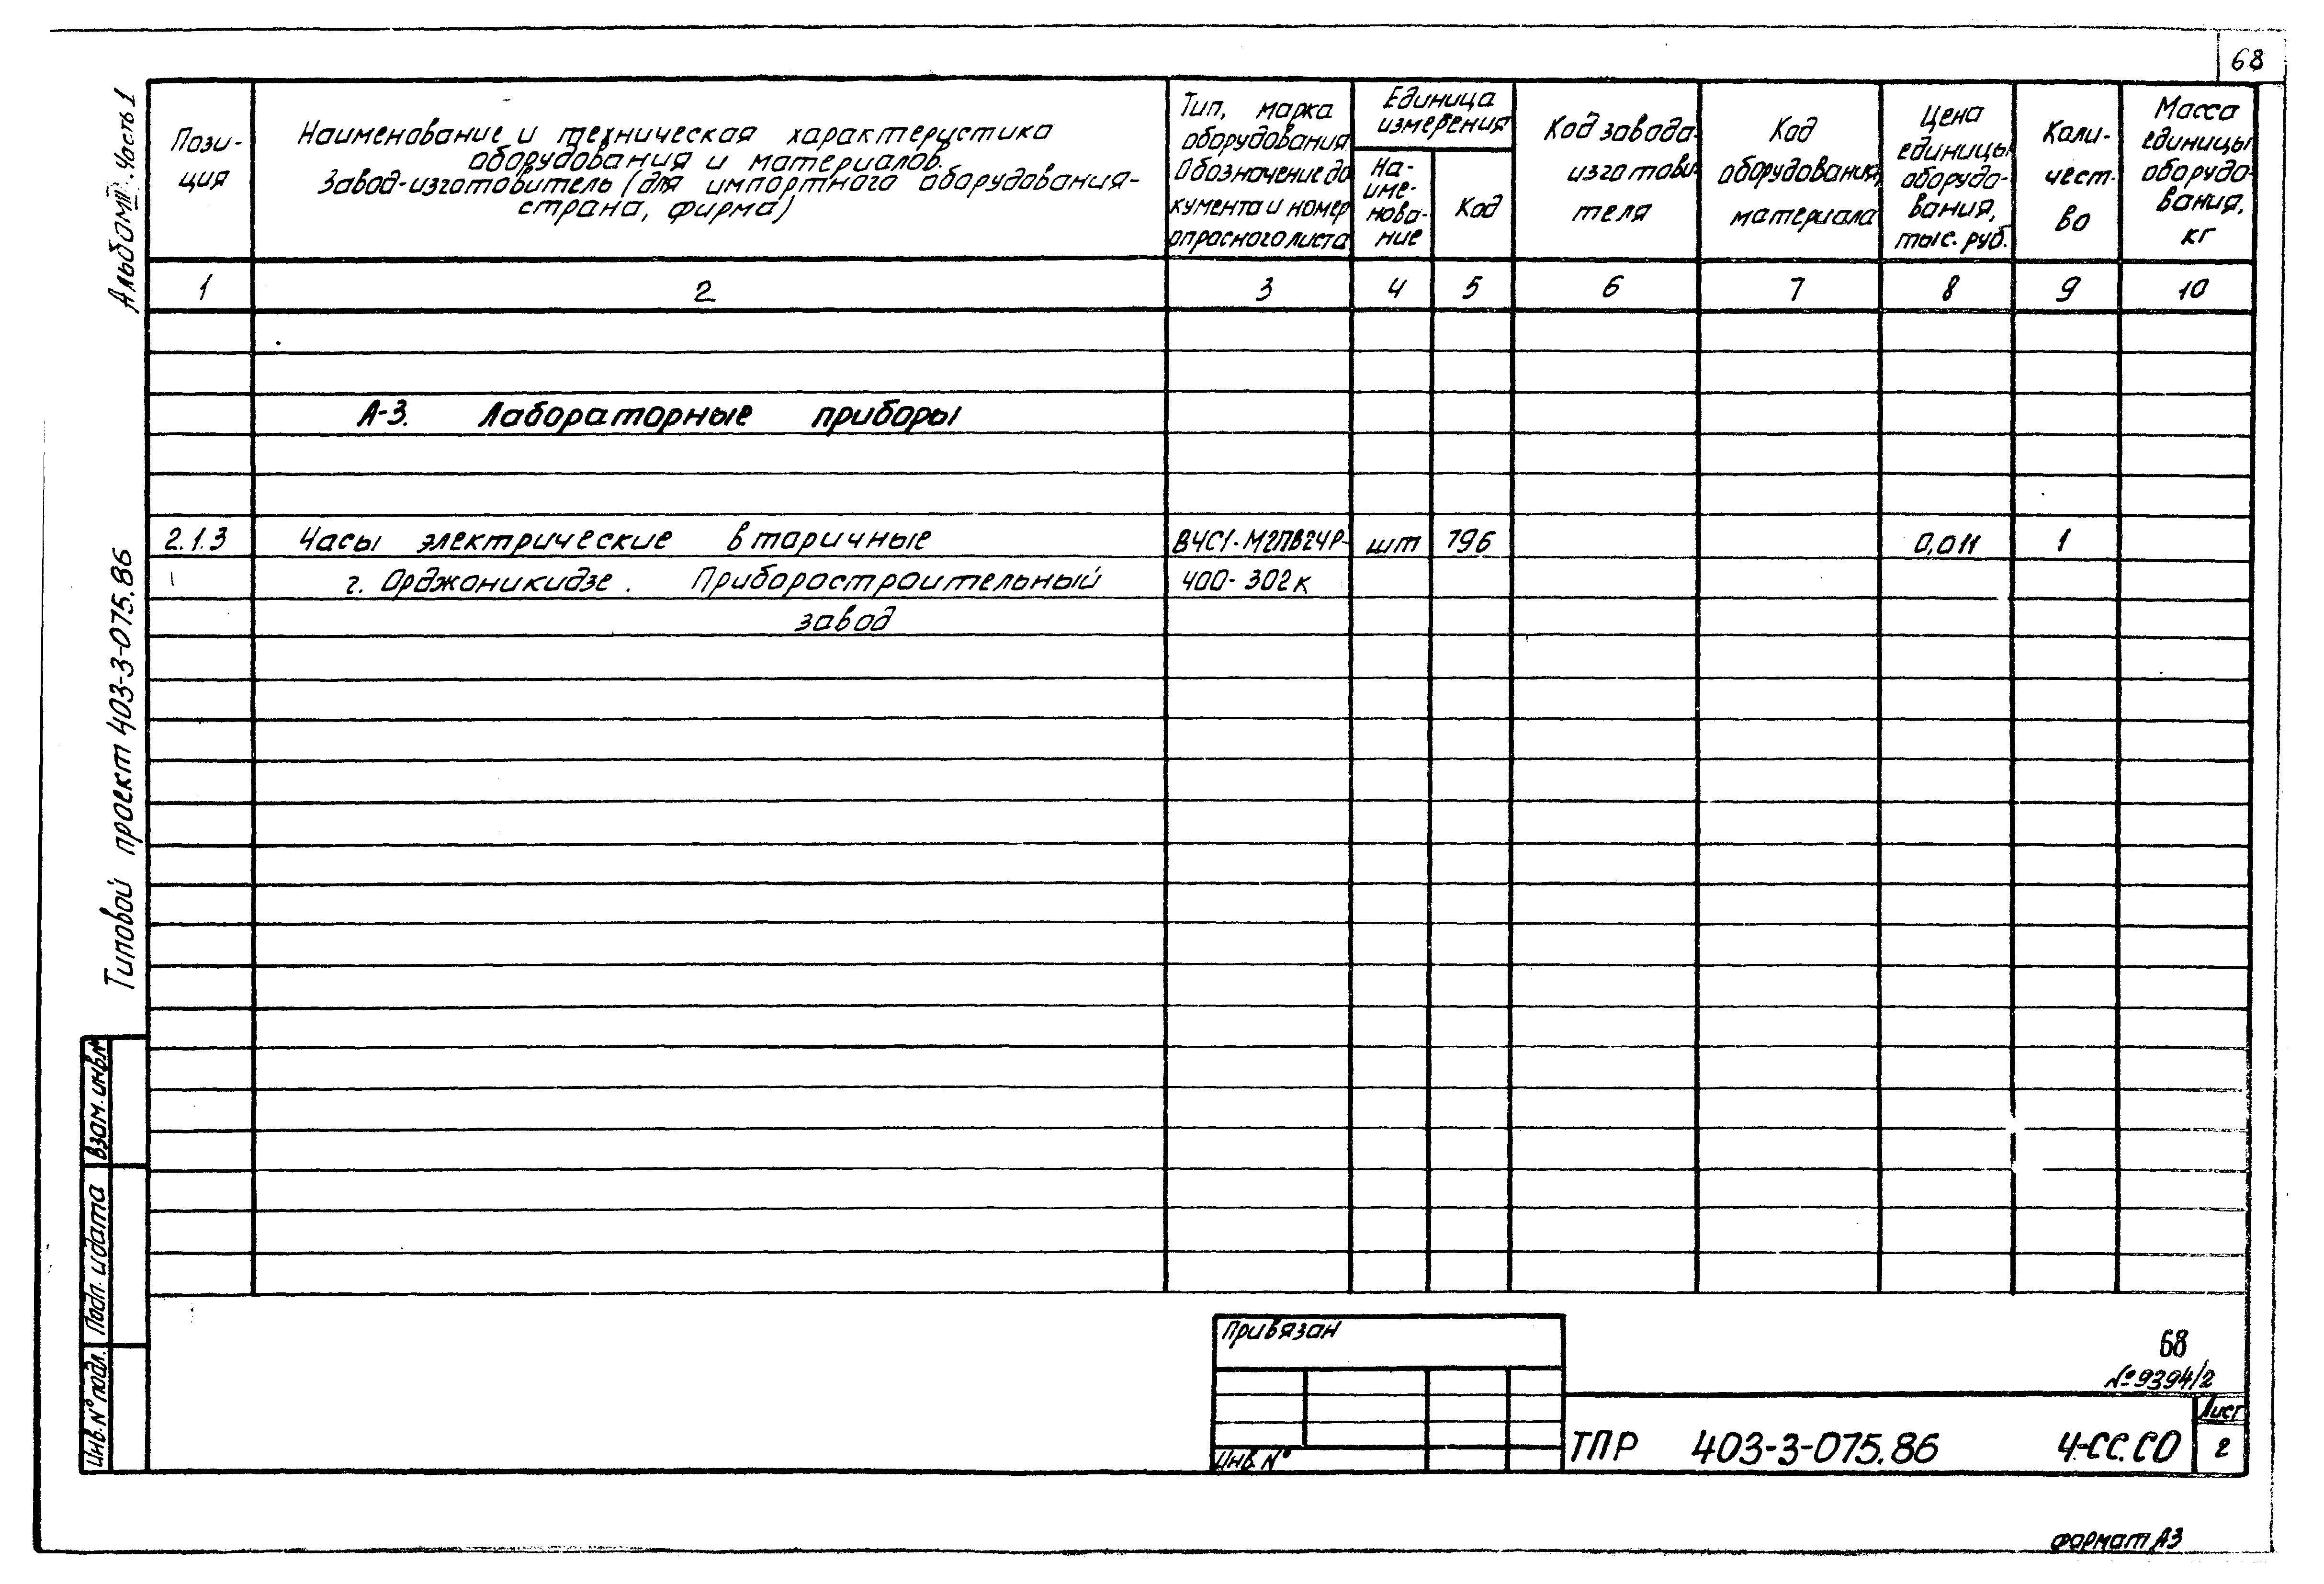 68
Альбом III. Часть 1
Типовой проект 403-3-075.86
Пози-
ция
Наименование и техническая характеристика
оборудования и материалов.
Завод-изготовитель (для импортного оборудования-
страна, фирма)
Тип, марка
оборудования.
Обозначение до
кумента и номер
опросного листа
Единица
измерения
На-
име-
нова-
ние
Код
Код завода-
изготови-
теля
Код
оборудования,
материала
Цена
единицы
оборудо-
вания,
тыс. руб.
Коли-
чест-
во
Масса
единицы
оборудо-
вания,
кг
1 2 3 4 5 6 7 8 9 10
А-3. Лабораторные приборы
2.1.3 Часы электрические вторичные ВЧС1-М2ПВ24Р- шт 796 0,011 1
г. Орджоникидзе. Приборостроительный 400-302к
завод
Взам. инв.№
Подп. и дата
Инв. № подл.
Привязан
Инв. №
68
№ 9394/2
ТПР 403-3-075.86 4-СС.СО
Лист
2
Формат А3